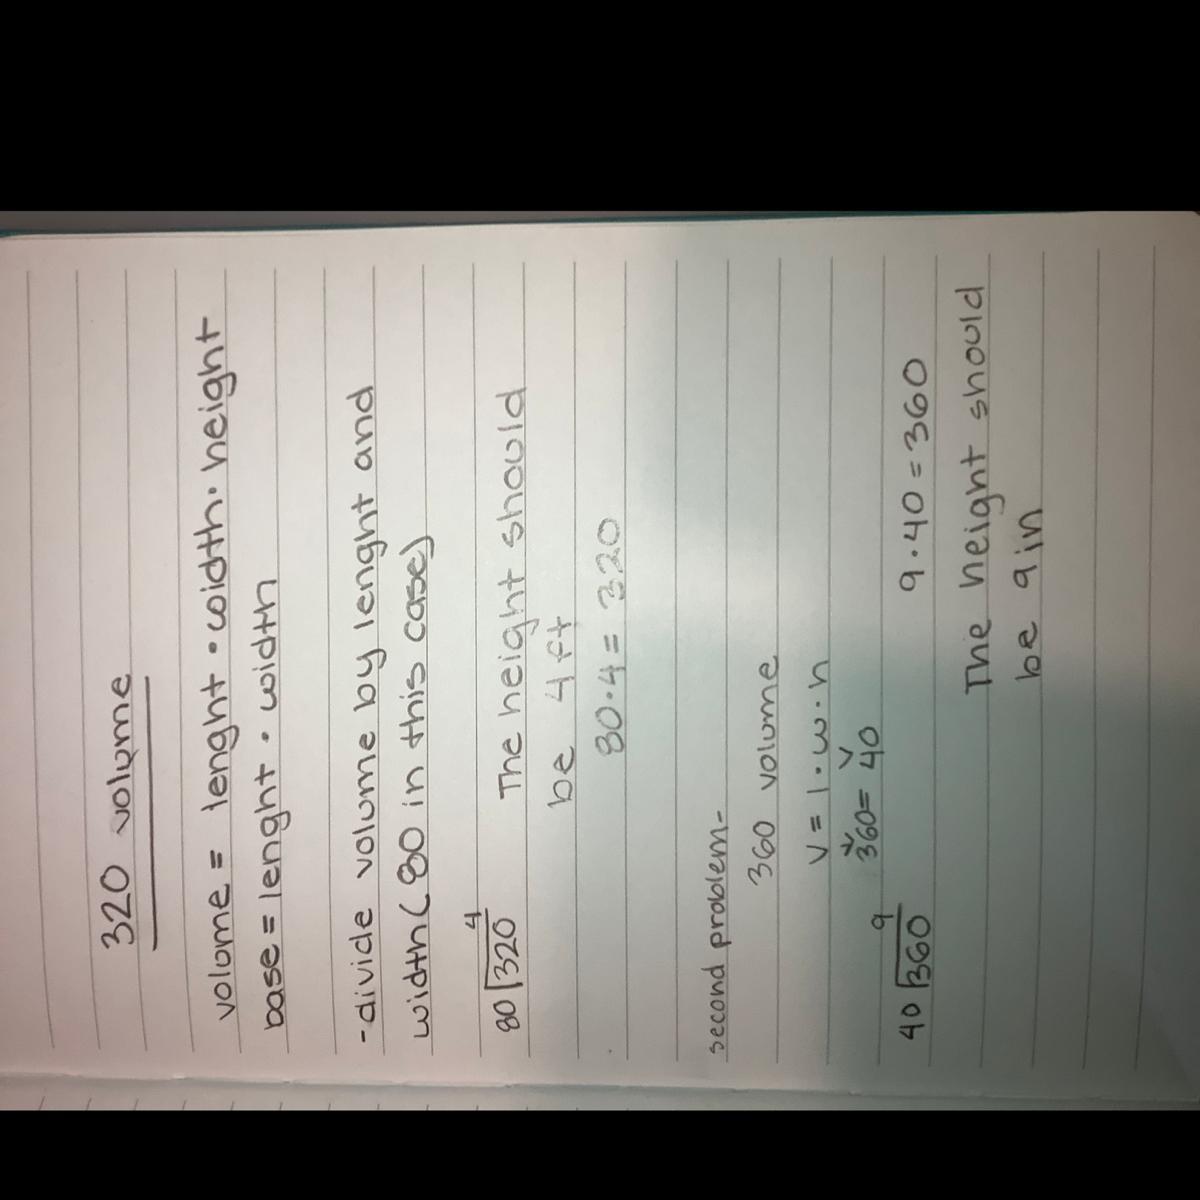 320 volume
volume = lenght • width • height
base = lenght • width
-divide volume by lenght and
width (80 in this case)
4
80 320 The height should
be 4 ft
80 • 4 = 320
second problem-
360 volume
v = l • w • h
360 = 40
9
40 360 9 • 40 = 360
The height should
be 9 in